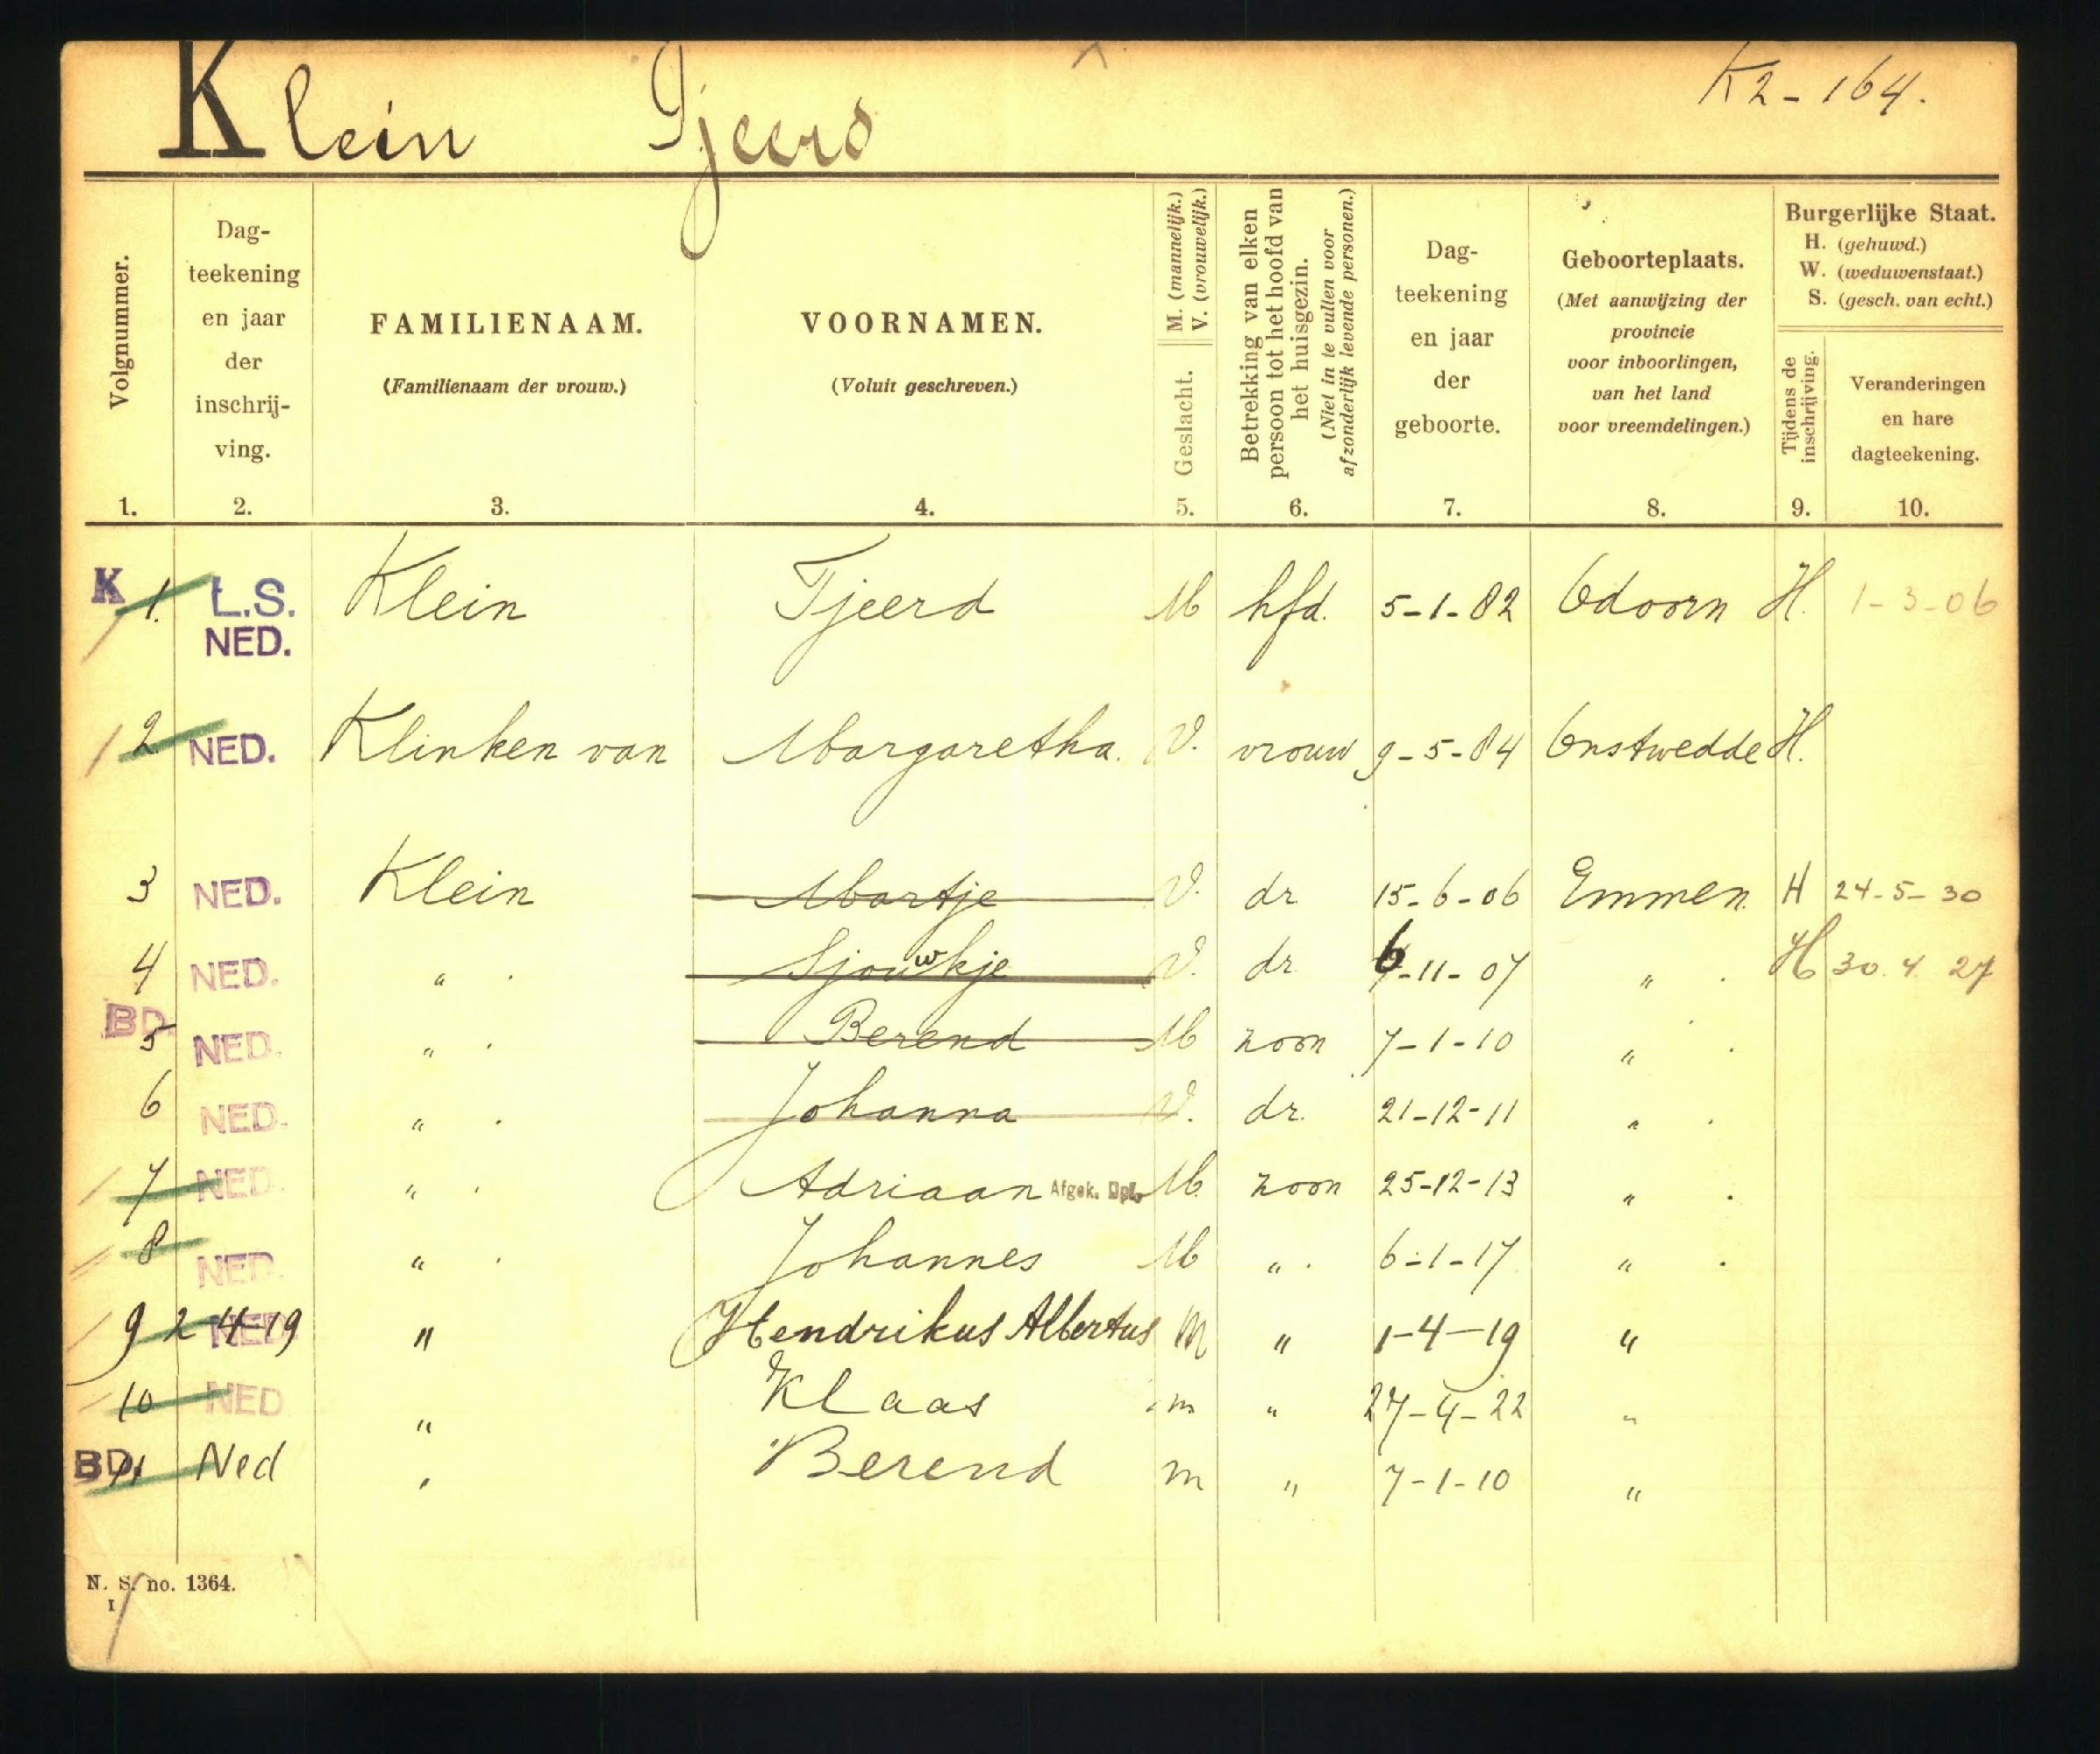 Klein Tjeerd
K2-164.
Volgnummer.
1.
Dag-
teekening
en jaar
der
inschrij-
ving.
2.
FAMILIENAAM.
(Familienaam der vrouw.)
3.
VOORNAMEN.
(Voluit geschreven.)
4.
M. (mannelijk.)
V. (vrouwelijk.)
Geslacht.
5.
Betrekking van elken
persoon tot het hoofd van
het huisgezin.
(Niet in te vullen voor
afzonderlijk levende personen.)
6.
Dag-
teekening
en jaar
der
geboorte.
7.
Geboorteplaats.
(Met aanwijzing der
provincie
voor inboorlingen,
van het land
voor vreemdelingen.)
8.
Burgerlijke Staat.
H. (gehuwd.)
W. (weduwenstaat.)
S. (gesch. van echt.)
Tijdens de
inschrijving.
9.
Veranderingen
en hare
dagteekening.
10.
K 1. L.S. Klein Tjeerd M hfd. 5-1-82 Odoorn H. 1-3-06
NED.
2 NED. Klinken van Margaretha. V. vrouw 9-5-84 Onstwedde H.
3 NED. Klein Martje V. dr 15-6-06 Emmen H 24-5-30
4 NED. " Sjouwkje V. dr 6-11-07 " H 30.4.27
BD.
5 NED. " Berend M zoon 7-1-10 "
6 NED. " Johanna V. dr. 21-12-11 "
7 NED. " Adriaan Afgek. Dpl. M. zoon 25-12-13 "
8 NED. " Johannes M " 6-1-17 "
9 2-4-19 NED. " Hendrikus Albertus M " 1-4-19 "
10 NED " Klaas m " 27-4-22 "
BD. 11 Ned " Berend m " 7-1-10 "
N. S. no. 1364.
I